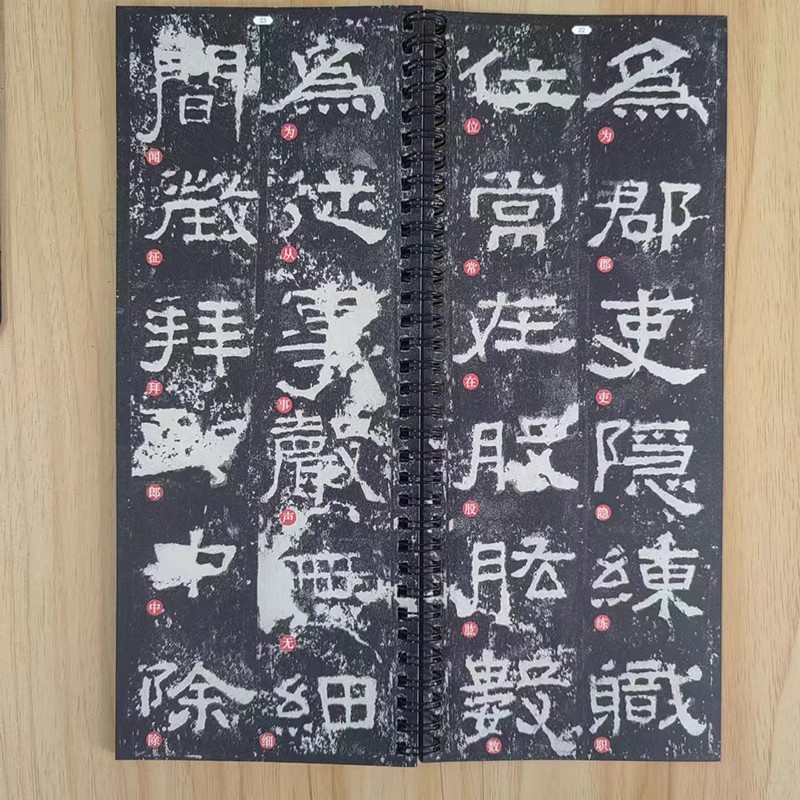 22
為郡吏隱練職
为郡吏隐练职
位常在股肱數
位常在股肱数
23
為從事聲無細
为从事声无细
間徵拜郎中除
闻征拜郎中除